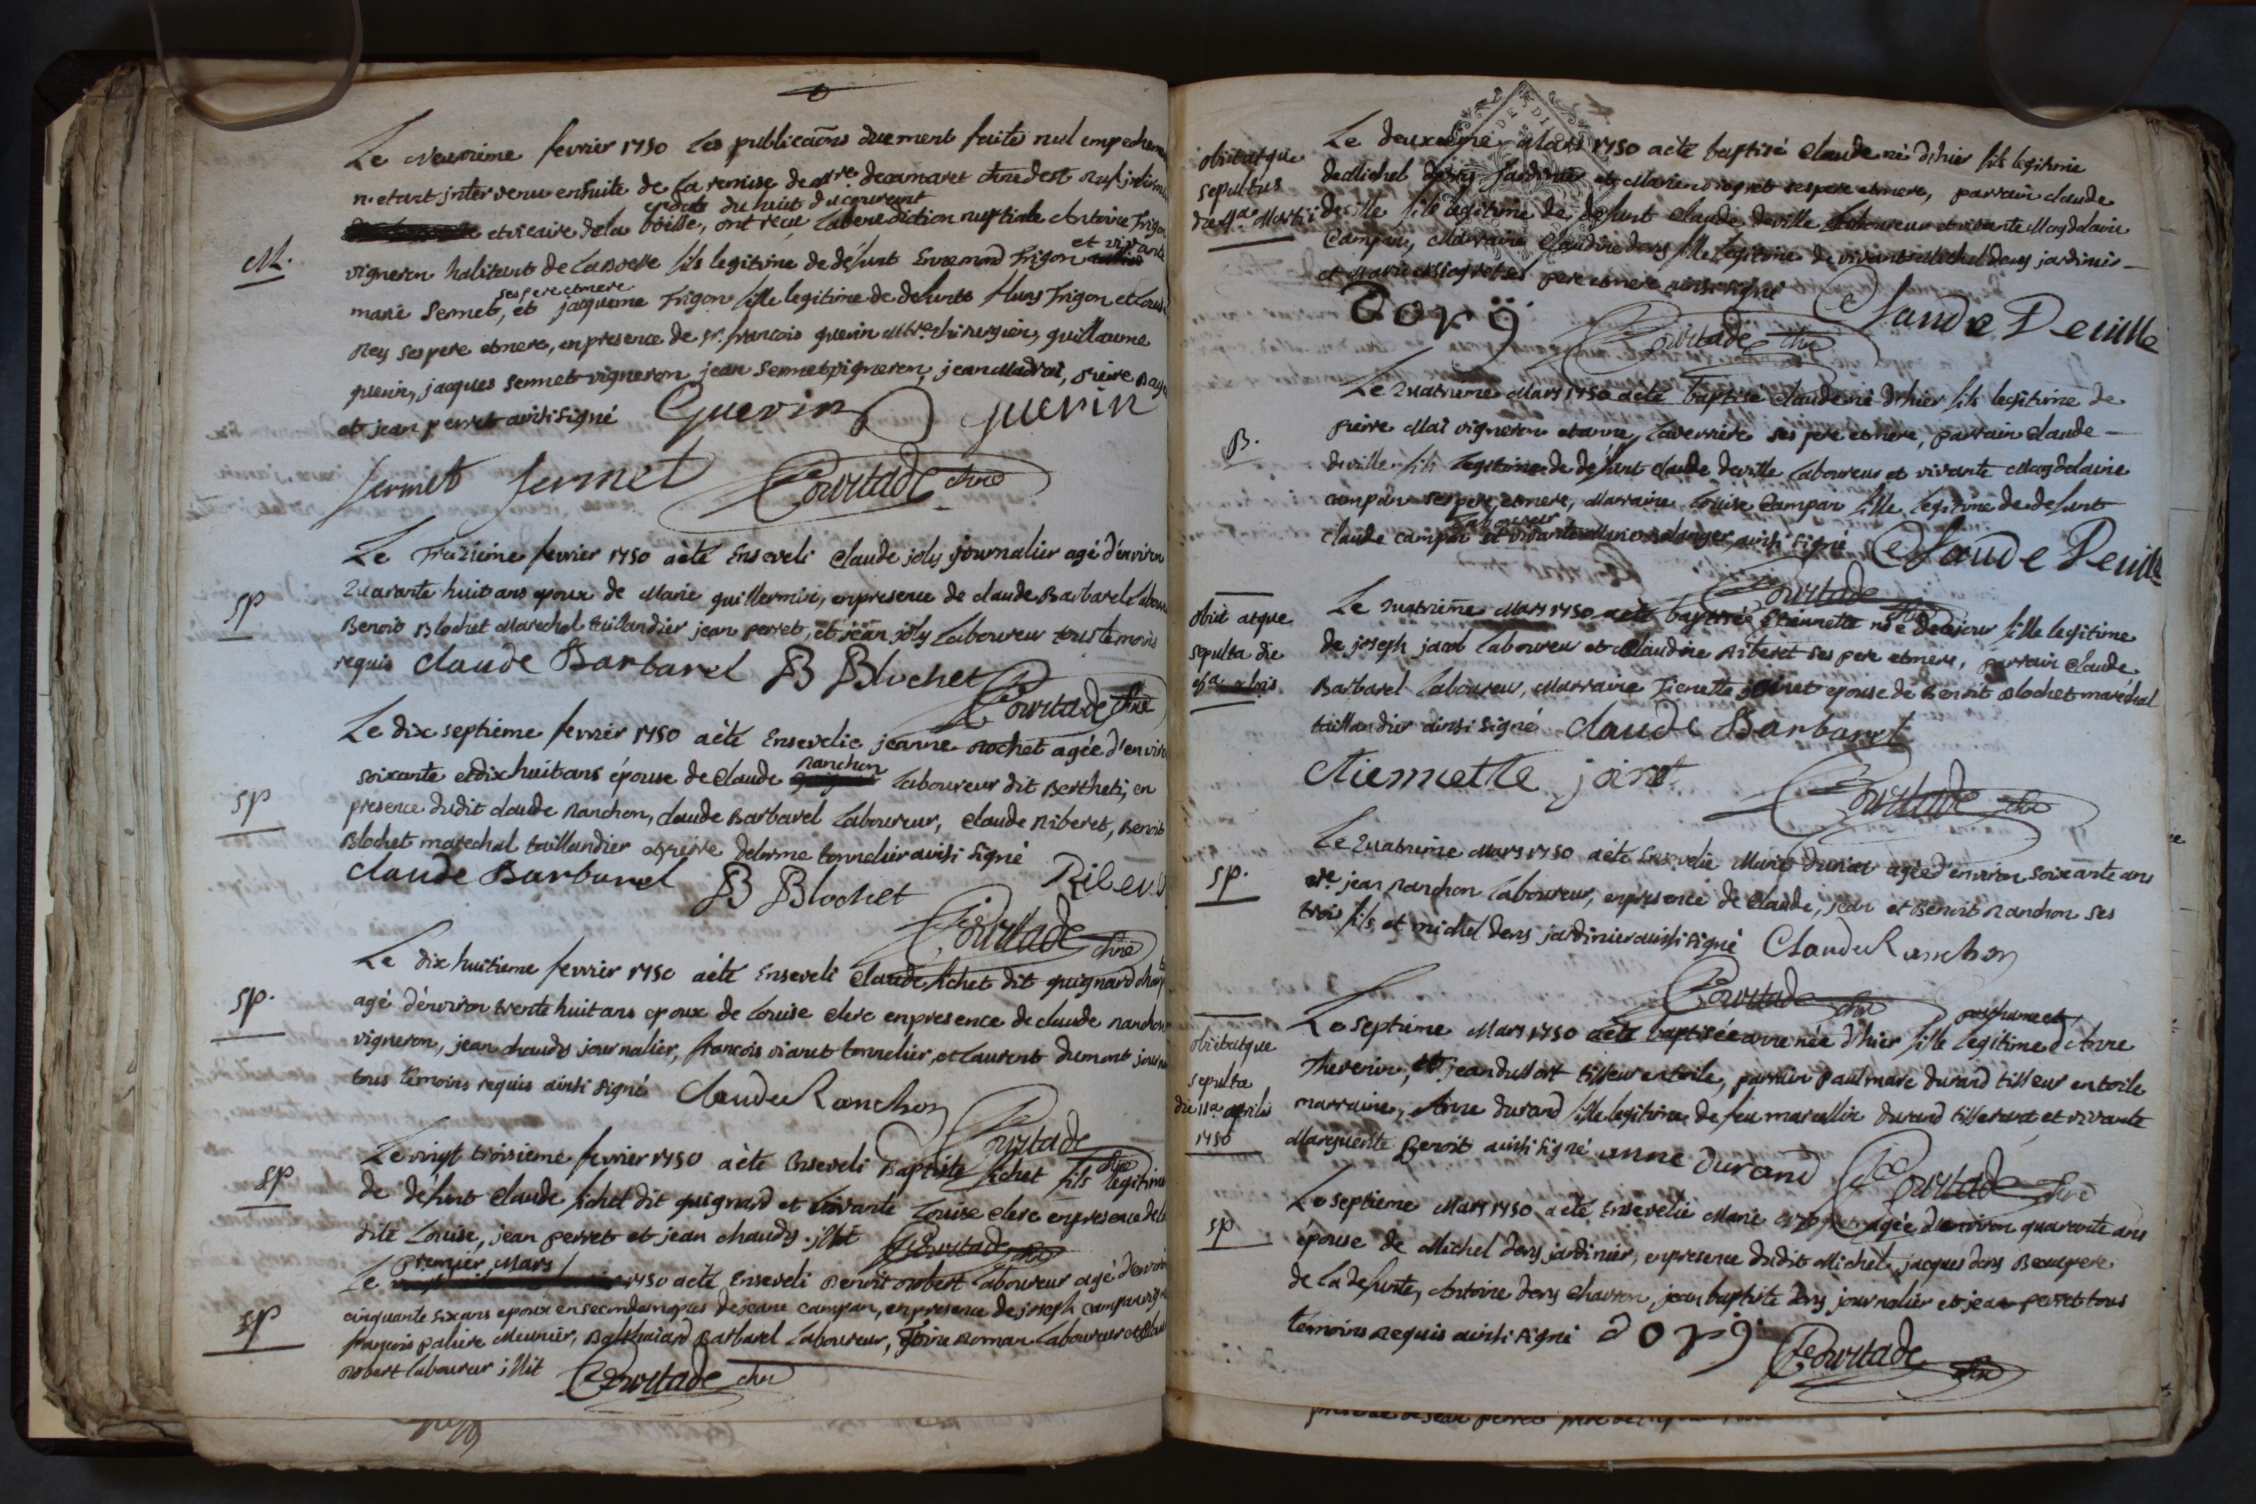 Le Neuvième fevrier 1750 Les publicaõns duement faite nul empechemen
n'etant intervenu ensuite de la remise de
et datt du huit du courant
et vicaire de la boësse, ont reçu la benediction nuptiale Antoine Trigon
M.
vigneron habitant de Laboesse fils legitime de défunt Enremond Trigon et vivante
marie Sermet, ses pere et mere et jaqueme Trigon fille legitime de defunts Hugs Trigon et Louis
Rey ses pere et mere, en presence de sr. françois guerin Mtre chirurgien, guillaume
guerin, jacques sermet vigneron jean Sermet vigneron, jean Madrat, Pierre
et jean perret ainsi signé Guerin guerin
sermet sermet Courtade Curé
Le Traizième fevrier 1750 a été Enseveli Claude joly journalier agé d'environ
SP
quarante huit ans epoux de Marie guillermin, en presence de claude Barbarel Labou
Benoit Blochet Marechal taillandier jean perret, et jean joly Laboureur tous temoins
requis claude Barbarel BBlochet
Courtade Curé
Le dix septième fevrier 1750 a été Ensevelie jeanne Rochet agée d'enviro
SP
soixante et dix huit ans épouse de Claude Ranchon Laboureur dit Bertheti, en
presence dudit claude Ranchon, Claude Barbarel Laboureur, Claude Riberet, Benoit
Blochet marechal taillandier et pierre Delorme tonnelier ainsi signé
claude Barbarel BBlochet Riber
Courtade Curé
Le dix huitième fevrier 1750 a été Enseveli Claude fichet dit guignard
SP.
agé d'environ trente huit ans epoux de Louise Clerc en presence de claude ranchon
vigneron, jean chaudy journalier, françois vianet tonnelier, et Laurent dumont jour
tous temoins requis ainsi signé Claude Ranchon
Courtade Curé
Le vingt troisieme fevrier 1750 a été Enseveli Baptiste fichet fils legitime
SP
de défunt Claude fichet dit guignard et vivante Louise Clerc en presence de la
dite Louise, jean perret et jean chaudy illit Courtade Curé
Le premier Mars 1750 a été Enseveli Benoit Robert Laboureur agé d'enviro
SP
cinquante six ans epoux en secondes nopces de jeane campan, en presence de joseph campan
françois paliere Meunier, Balthazard Barbarel Laboureur, pierre Roman Laboureur et
Robert Laboureur illit Courtade curé
obiit atque
sepultus
die 4a. Martii
Le deuxieme Mars 1750 a été baptisé Claude né d'hier fils legitime
de Michel dory jardinier et Marie ses pere et mere, parrain claude
deville fils legitime de defunt Claude deville Laboureur et vivante Magdelaine
Campan, Marraine Claudine dory fille legitime de vivant Michel dory jardinier
et Marie ses pere et mere ainsi signé
Dory Courtade Curé Claude Deuille
Le Quatrieme Mars 1750 a été baptisé Claude né d'hier fils legitime de
B.
Pierre Mai vigneron et anne Laverrière ses pere et mere, parrain Claude
deville fils legitime de défunt claude deville Laboureur et vivante Magdelaine
campan ses pere et mere, Marraine Louise Campan fille legitime de defunt
claude campan Laboureur et vivante ainsi signé Claude Deuille
Courtade Curé
obiit atque
sepulta die
Le quatrieme Mars 1750 a été baptisée Etiennette née de ce jour fille legitime
de joseph jacob Laboureur et Claudine Riberet ses pere et mere, parrain Claude
Barbarel Laboureur, Marraine Tienette epouse de Benoit Blochet marechal
taillandier ainsi signé Claude Barbarel
Courtade Curé
Le Quatrieme Mars 1750 a été Ensevelie Marie agée d'environ soixante ans
SP.
jean Ranchon Laboureur, en presence de Claude, jean et Benoit Ranchon ses
trois fils et michel dory jardinier ainsi signé Claude Ranchon
Courtade Curé
obiit atque
sepulta
die 11a aprilis
1750
posthume et
Le septieme Mars 1750 a été baptisée anne née d'hier fille legitime d'Anne
Thevenin, et jean dussort tisseur en toile, parrain Paul marc durand tisseur en toile
marraine, Anne durand fille legitime de feu marcellin durand tisserand et vivante
Marguerite Benoit ainsi signé anne durand Courtade Curé
Le septieme Mars 1750 a été Ensevelie Marie agée d'environ quarante ans
SP
épouse de Michel dory jardinier, en presence dudit Michel, jacques dory Beaupere
de la defunte, Antoine dory Charron, jean baptiste dory journalier et jean perret tous
temoins requis ainsi signé dory Courtade Curé